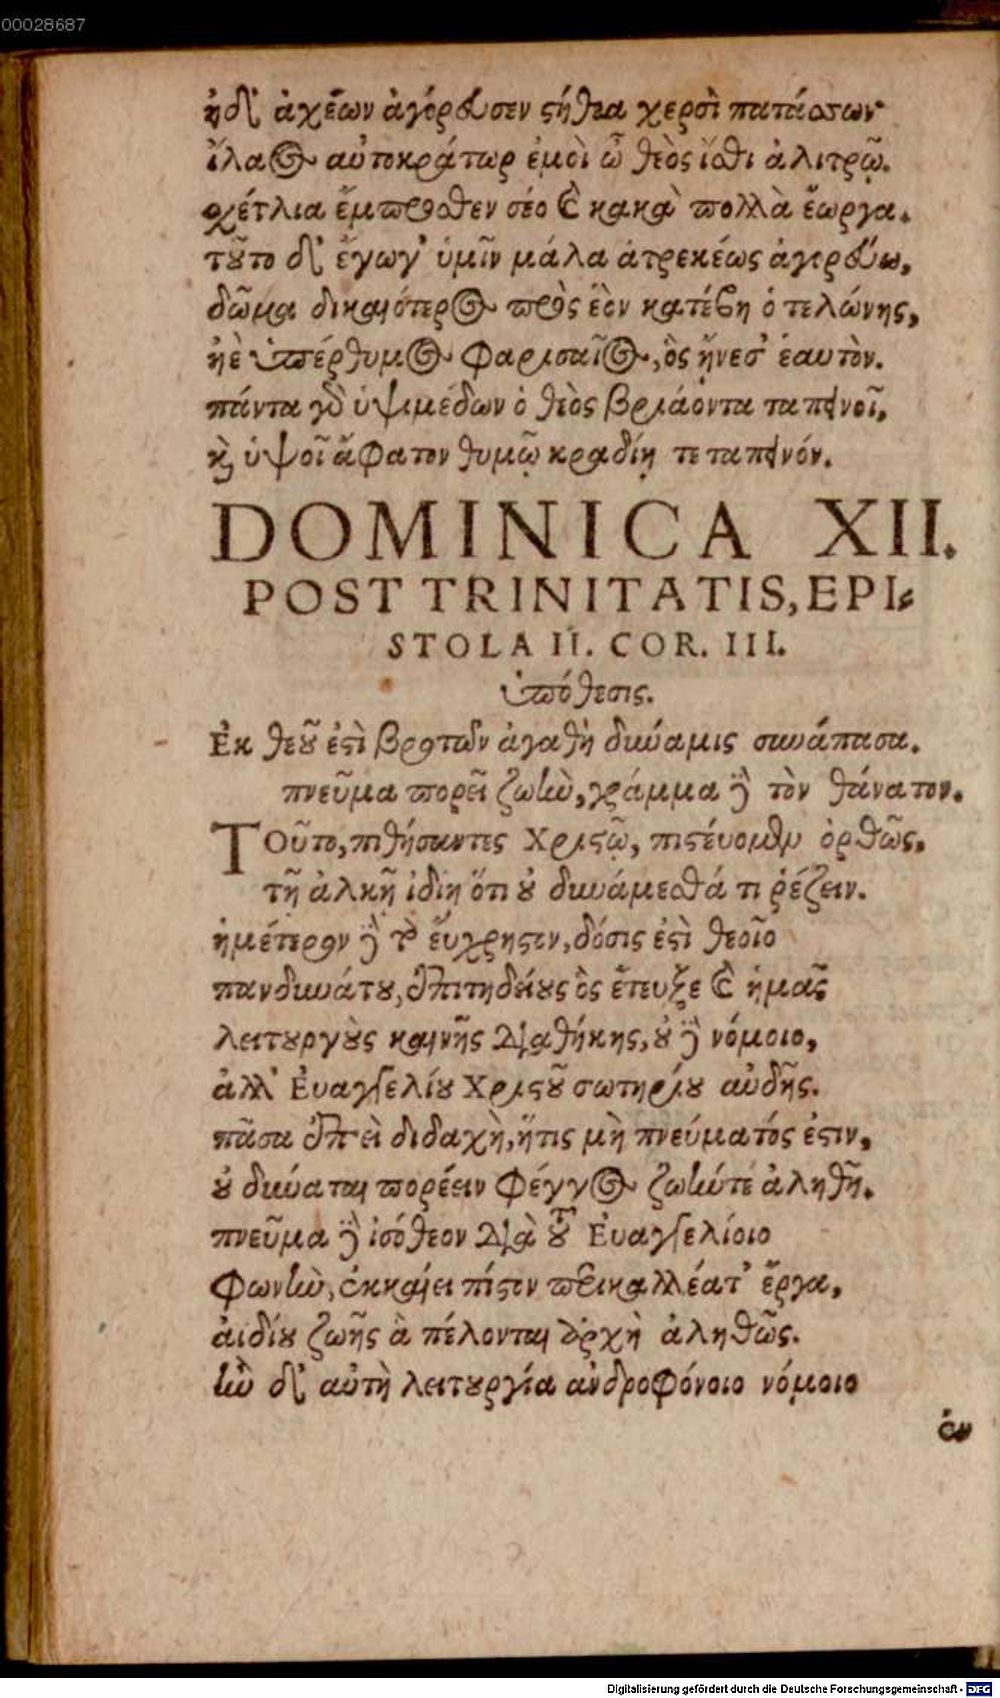 00028687
ἠδ' ἀχέων ἀγόρευσεν στήθεα χερσὶ πατάσσων
ἵλαος αὐτοκράτωρ ἐμοὶ ὦ θεὸς ἴσθι ἀλιτρῷ.
σχέτλια ἔμπροσθεν σέο καὶ κακὰ πολλὰ ἔωργα.
τοῦτο δ' ἔγωγ' ὑμῖν μάλα ἀτρεκέως ἀγορεύω,
δῶμα δικαιότερος πρὸς ἑὸν κατέβη ὁ τελώνης,
ἠὲ ὑπέρθυμος Φαρισαῖος, ὃς ᾔνεσ' ἑαυτὸν.
πάντα γὰρ ὑψιμέδων ὁ θεὸς βριάοντα ταπεινοῖ,
καὶ ὑψοῖ ἄφατον θυμῷ κραδίῃ τε ταπεινόν.
DOMINICA XII.
POST TRINITATIS, EPI-
STOLA II. COR. III.
ὑπόθεσις.
Ἐκ θεοῦ ἐστὶ βροτῶν ἀγαθὴ δύναμις συνάπασα.
πνεῦμα πορεῖ ζωὴν, γράμμα δὲ τὸν θάνατον.
ΤΟῦτο, πιθήσαντες Χριστῷ, πιστεύομεν ὀρθῶς,
τῇ ἀλκῇ ἰδίῃ ὅτι οὐ δυνάμεσθά τι ῥέζειν.
ἡμέτερον δὲ τὸ εὔχρηστον, δόσις ἐστὶ θεοῖο
πανδυνάτου, ἐπιτηδείους ὃς ἔτευξε καὶ ἡμᾶς
λειτουργοὺς καινῆς διαθήκης, οὐ δὲ νόμοιο,
ἀλλ' Ἐυαγγελίου Χριστοῦ σωτηρίου αὐδῆς.
πᾶσα ἐπεὶ διδαχὴ, ἥτις μὴ πνεύματός ἐστιν,
οὐ δύναται πορέειν φέγγος ζωήντε ἀληθῆ.
πνεῦμα δὲ ἰσόθεον διὰ τοῦ Ἐυαγγελίοιο
φωνὴν, ἐκκαίει πίστιν περικαλλέατ' ἔργα,
ἀιδίου ζωῆς ἃ πέλονται ἀρχὴ ἀληθῶς.
ἢν δ' αὐτὴ λειτουργία ἀνδροφόνοιο νόμοιο
ἐν
Digitalisierung gefördert durch die Deutsche Forschungsgemeinschaft - DFG